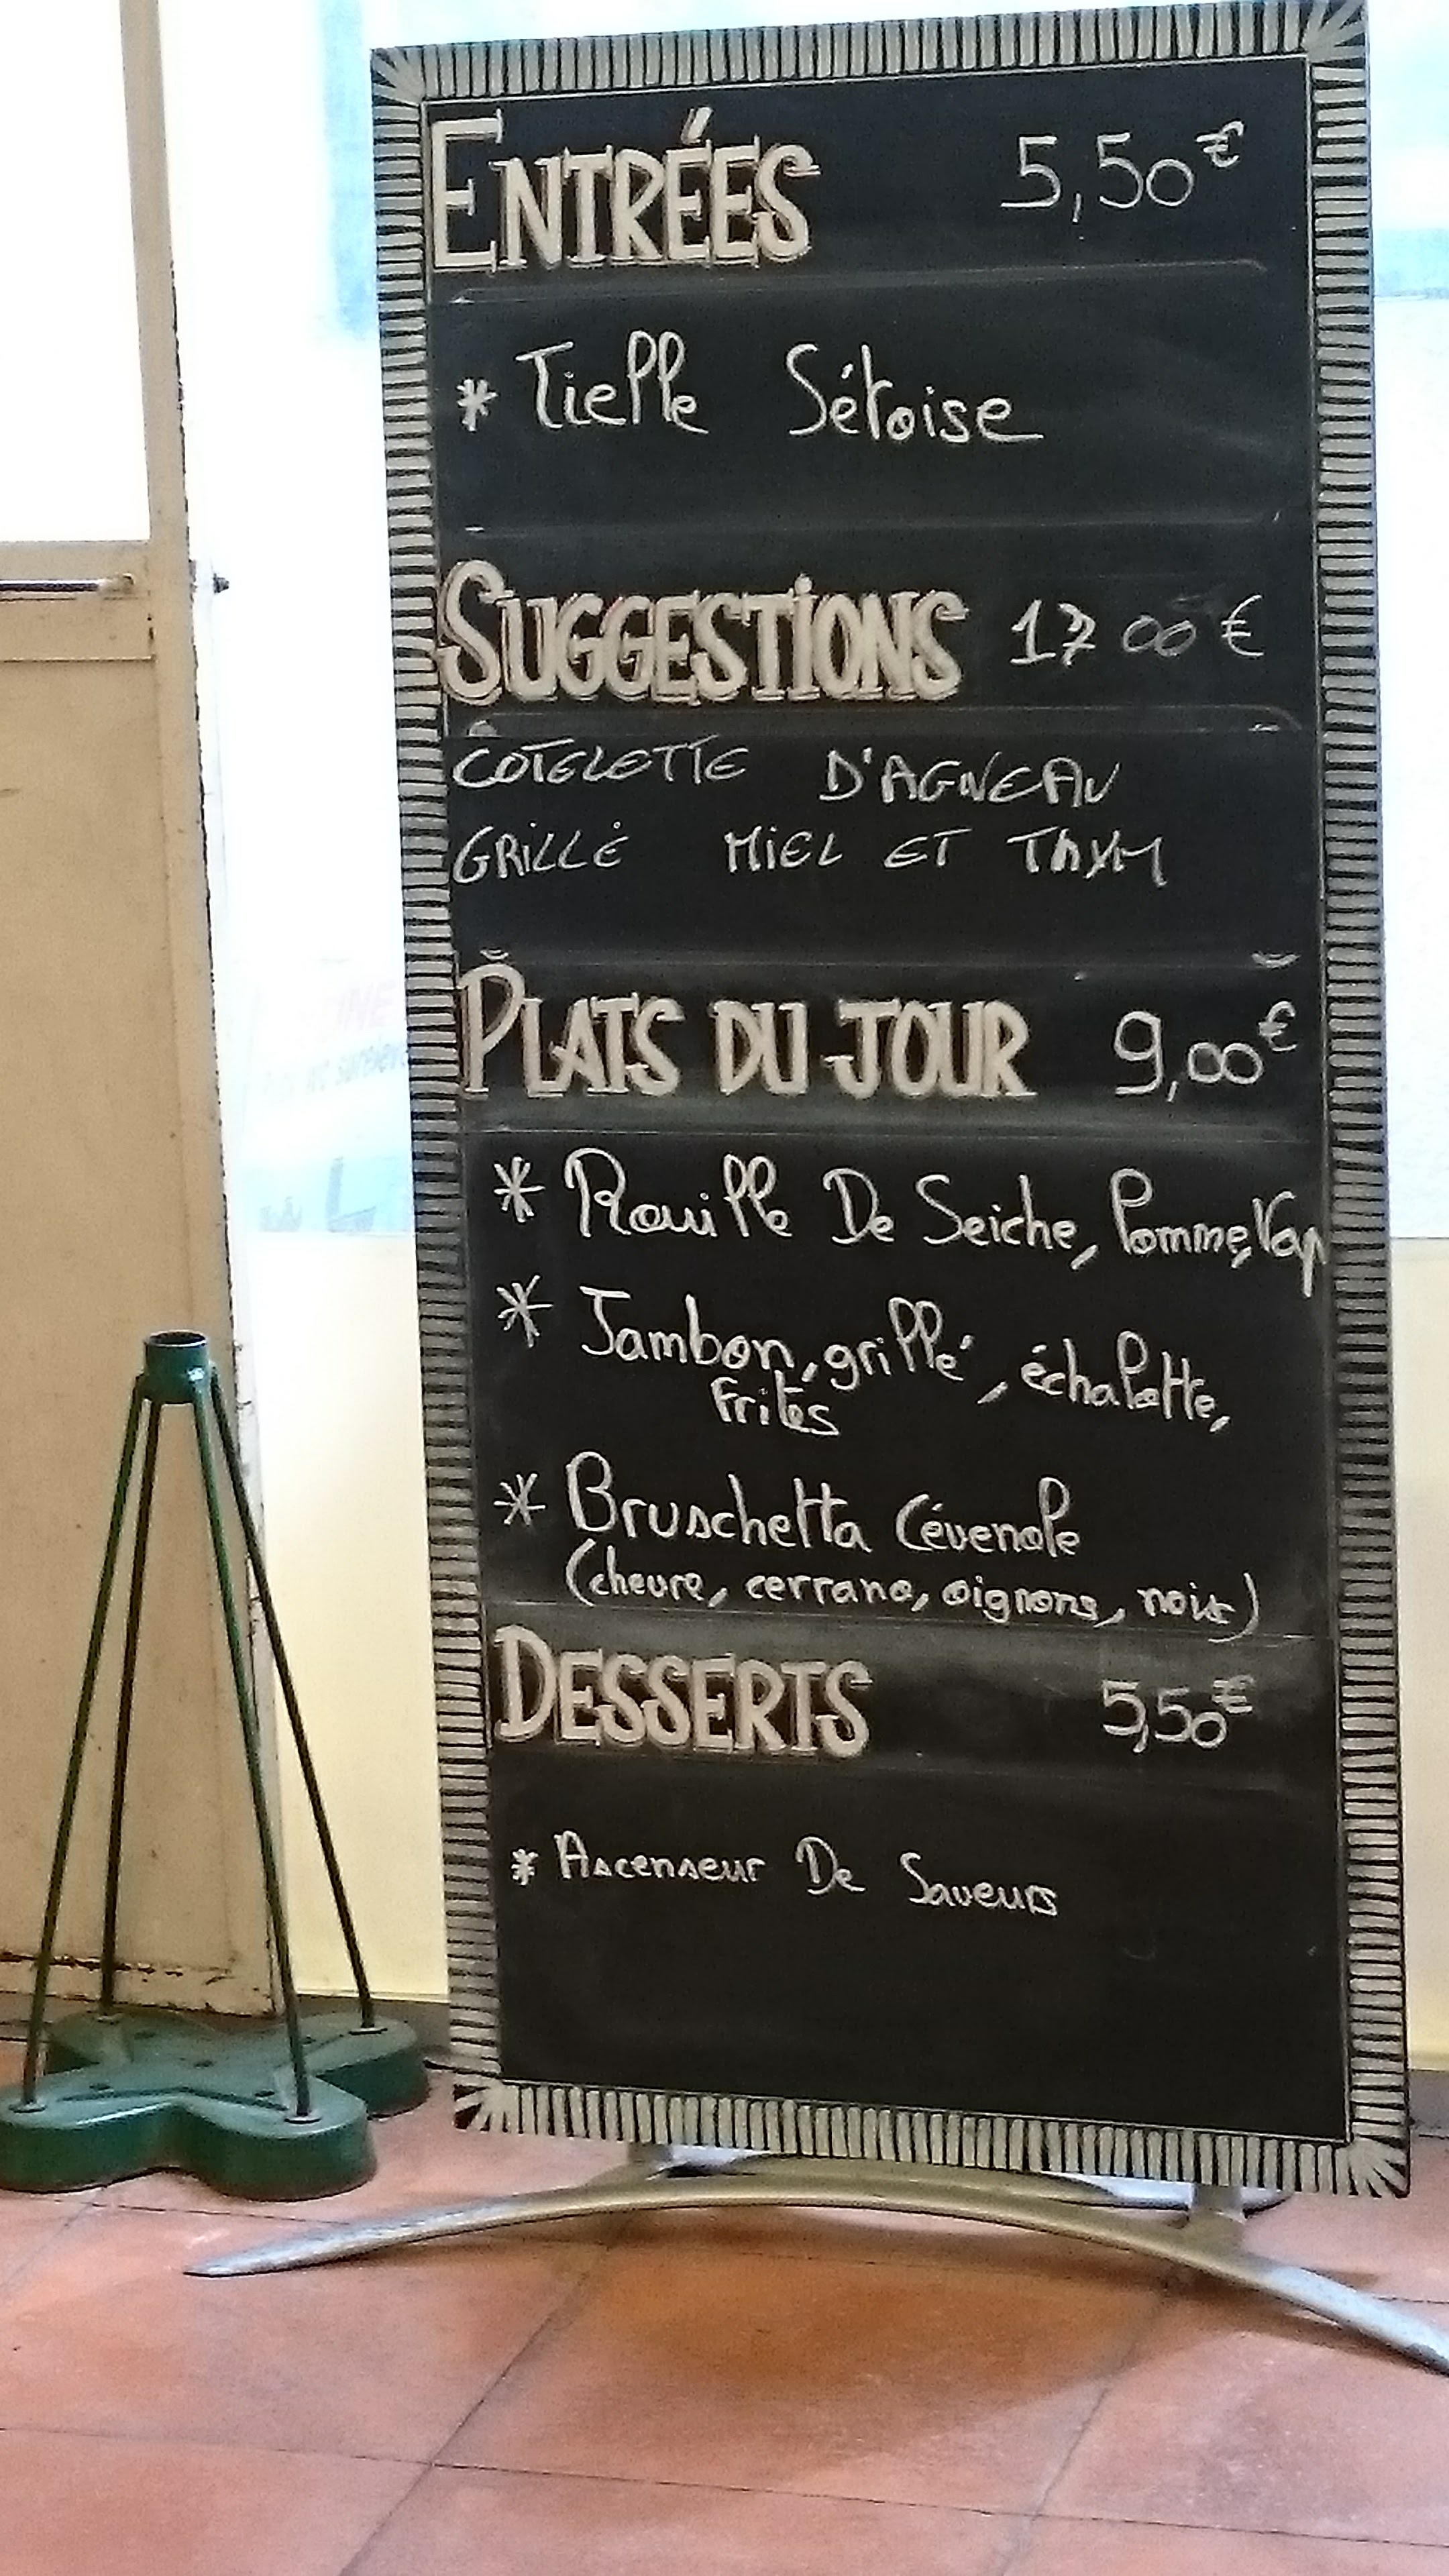 ENTRÉES 5,50€
* Tielle Sétoise
SUGGESTIONS 17 00 €
COTELETTE D'AGNEAU
GRILLÉ MIEL ET THYM
PLATS DU JOUR 9,00€
* Rouille De Seiche, Pomme, Vap
* Jambon, grillé, échalotte,
Frites
* Bruschetta Cévenole
(chevre, cerrano, oignons, noix)
DESSERTS 5,50€
* Ascenseur De Saveurs